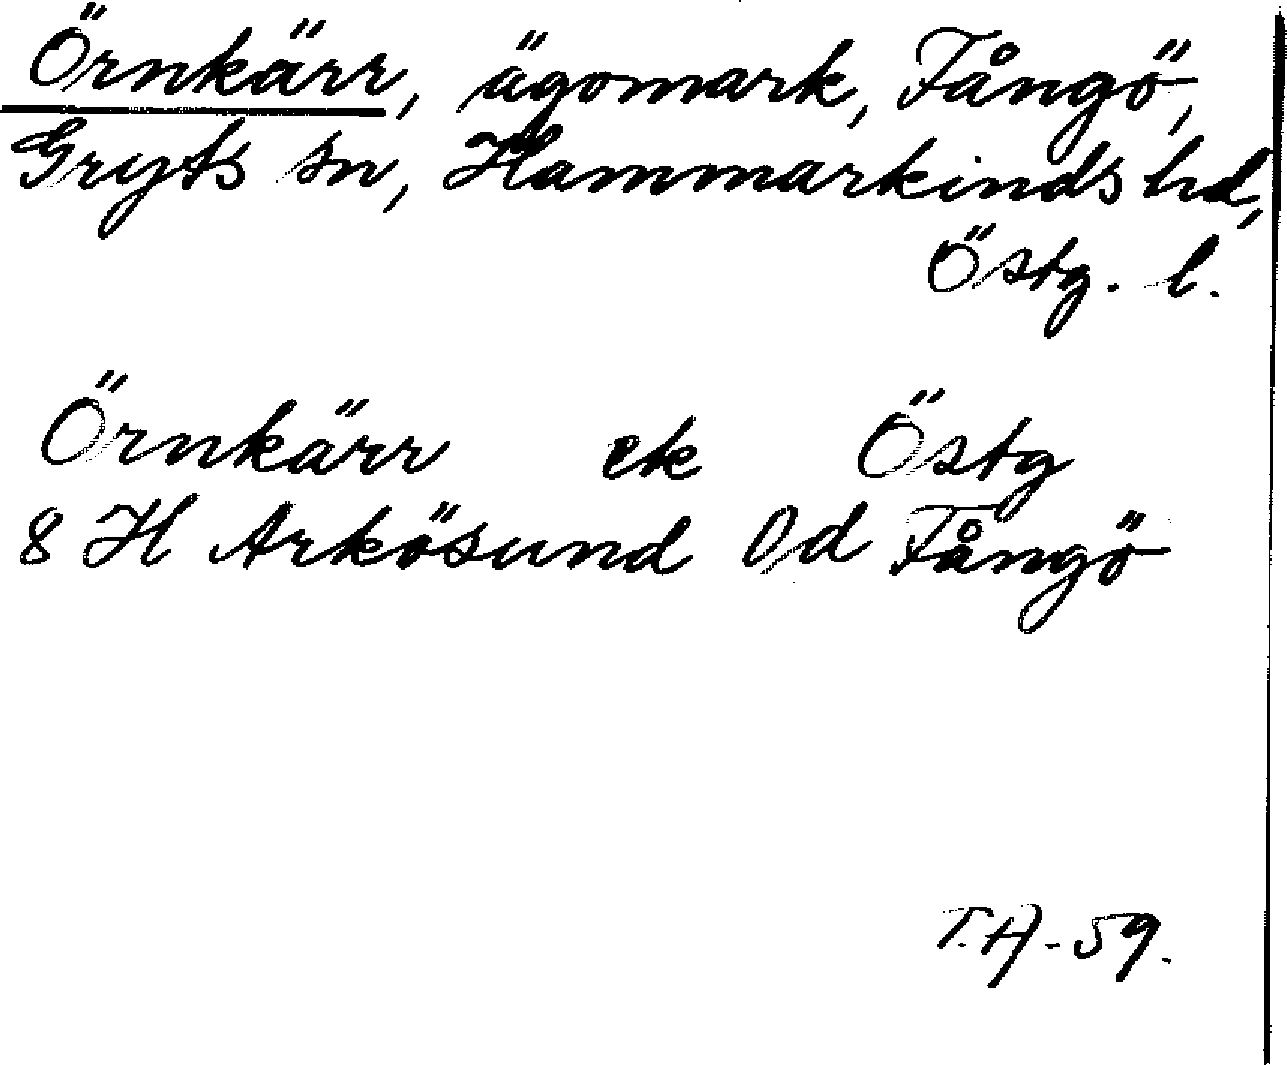 Örnkärr, ägomark, Fångö,
Gryts sn, Hammarkinds hd,
Östg. l.
Örnkärr ek Östg
8 H Arkösund Od Fångö
T.A-59.